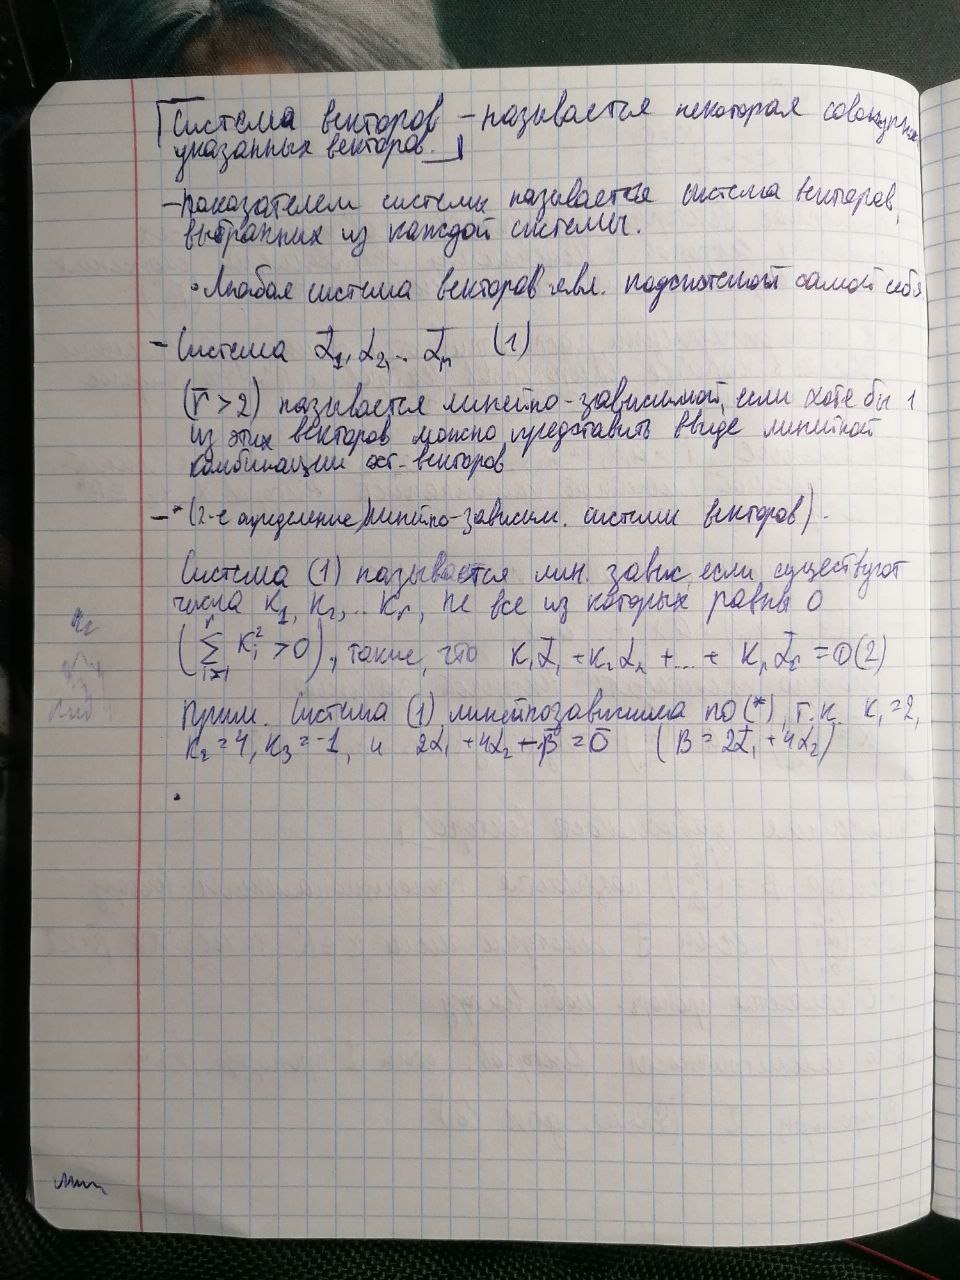 Система векторов – называется некоторая совокупность
указанных векторов.
– показателем системы называется система векторов,
выбранных из каждой системы.
• Любая система векторов явл. подсистемой самой себя
– Система α̅₁, α̅₂, .. α̅ₙ (1)
(r > 2) называется линейно-зависимой, если хотя бы 1
из этих векторов можно представить ввиде линейной
комбинации ост. векторов
– * (2-е определение) линейно-зависим. системы векторов).
Система (1) называется лин. завис, если существуют
числа K₁, K₂, .. Kᵣ, не все из которых равны 0
(∑ᵢ₌₁ʳ Kᵢ² > 0), такие, что K₁α̅₁ + K₂α̅₂ + ... + Kᵣα̅ᵣ = 0 (2)
Прим. Система (1) линейнозависима по (*), т.к. K₁ = 2,
K₂ = 4, K₃ = -1, и 2α̅₁ + 4α̅₂ + -β̅ = 0̅ (B = 2α̅₁ + 4α̅₂)